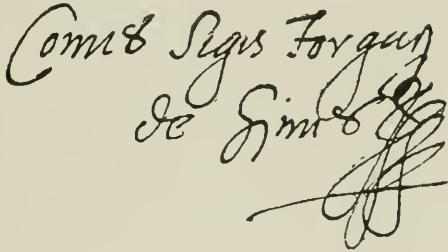 Comes Sigis Forgacz
de Gimes